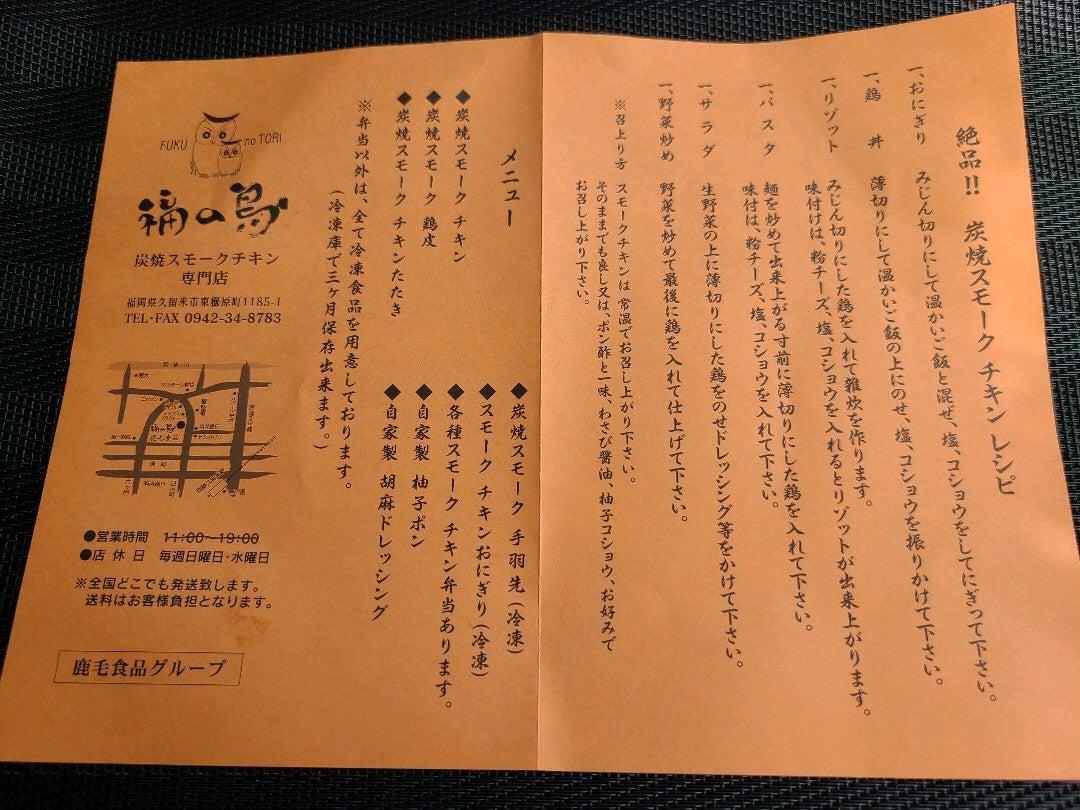 絶品!! 炭焼スモーク チキン レシピ
一、おにぎり みじん切りにして温かいご飯と混ぜ、塩、コショウをしてにぎって下さい。
一、鶏 丼 薄切りにして温かいご飯の上にのせ、塩、コショウを振りかけて下さい。
一、リゾット みじん切りにした鶏を入れて雑炊を作ります。
味付けは、粉チーズ、塩、コショウを入れるとリゾットが出来上がります。
一、パスタ 麺を炒めて出来上がる寸前に薄切りにした鶏を入れて下さい。
味付は、粉チーズ、塩、コショウを入れて下さい。
一、サラダ 生野菜の上に薄切りにした鶏をのせドレッシング等をかけて下さい。
一、野菜炒め 野菜を炒めて最後に鶏を入れて仕上げて下さい。
※召上り方 スモークチキンは常温でお召し上がり下さい。
そのままでも良し又は、ポン酢と一味、わさび醤油、柚子コショウ、お好みで
お召し上がり下さい。
メニュー
◆炭焼スモーク チキン
◆炭焼スモーク 鶏皮
◆炭焼スモーク チキンたたき
◆炭焼スモーク 手羽先(冷凍)
◆スモーク チキンおにぎり(冷凍)
◆各種スモーク チキン弁当あります。
◆自家製 柚子ポン
◆自家製 胡麻ドレッシング
※弁当以外は、全て冷凍食品を用意しております。
(冷凍庫で三ヶ月保存出来ます。)
FUKU no TORI
福の鳥
炭焼スモークチキン
専門店
福岡県久留米市東櫛原町1185-1
TEL・FAX 0942-34-8783
福の鳥
鹿毛食品
●営業時間 11:00〜19:00
●店休日 毎週日曜日・水曜日
※全国どこでも発送致します。
送料はお客様負担となります。
鹿毛食品グループ